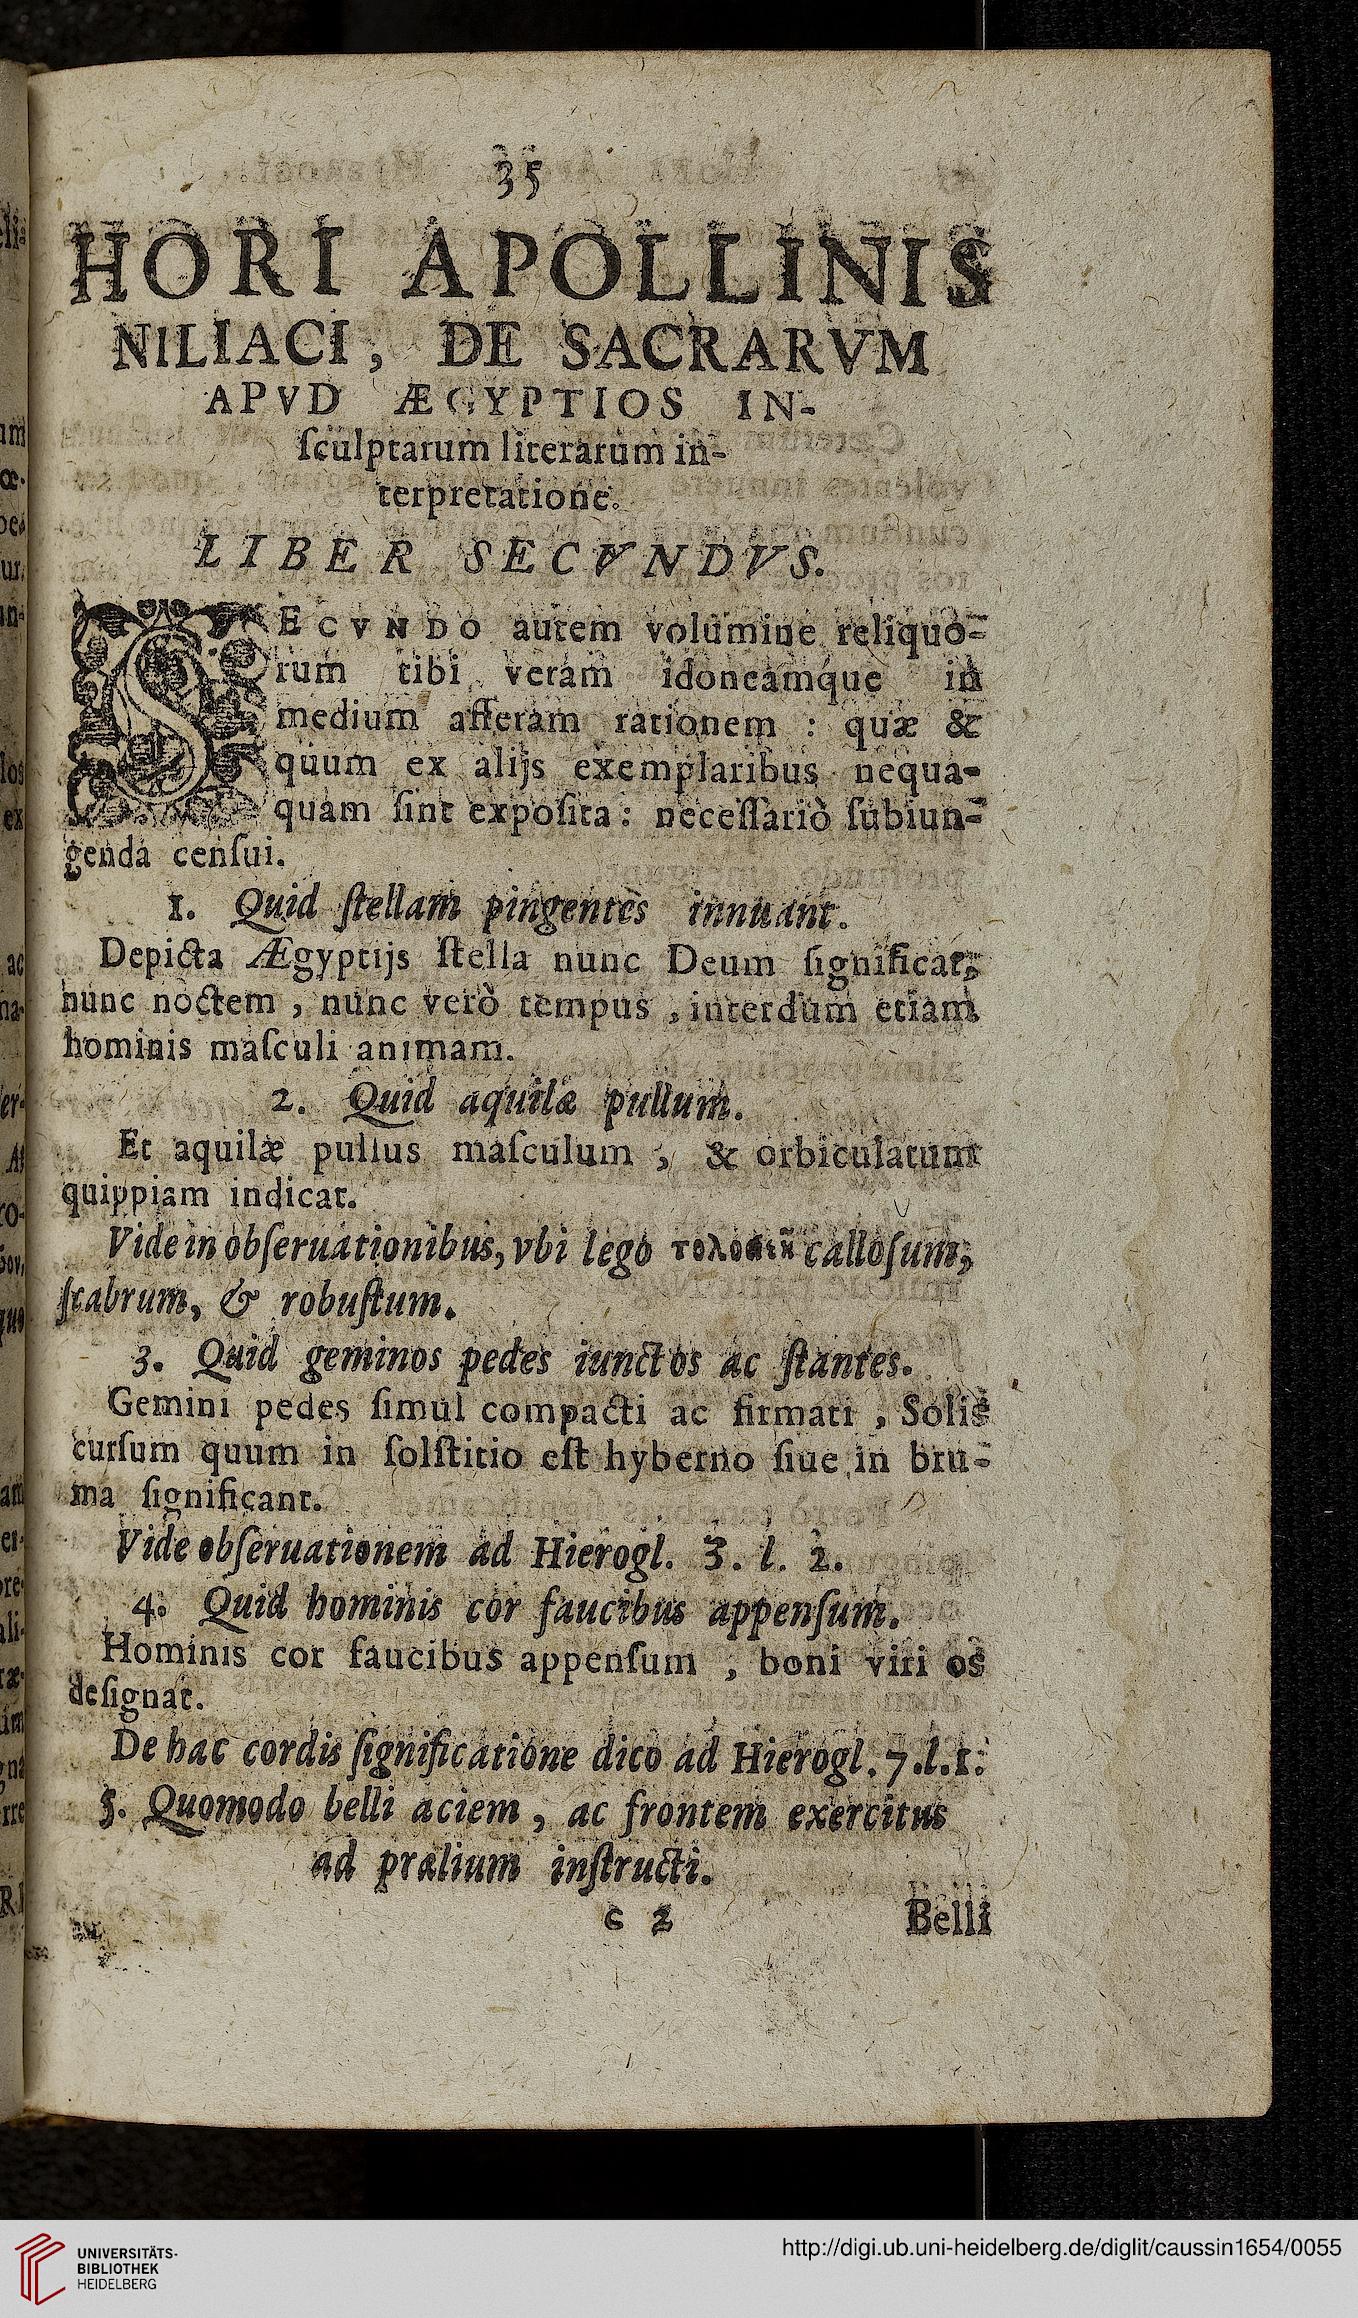 35
HORI APOLLINIS
NILIACI, DE SACRARVM
APVD ÆGYPTIOS IN-
ſculptarum literarum in-
terpretatione.
LIBER SECVNDVS.
SECVNDO autem volumine reliquo-
rum tibi veram idoneamque in
medium afferam rationem : quæ &
quum ex alijs exemplaribus nequa-
quam ſint expoſita : neceſſariò ſubiun-
genda cenſui.
1. Quid ſtellam pingentes innuant.
Depicta Ægyptijs ſtella nunc Deum ſignificat,
nunc noctem , nunc verò tempus , interdum etiam
hominis maſculi animam.
2. Quid aquilæ pullum.
Et aquilæ pullus maſculum , & orbiculatum
quippiam indicat.
Vide in obſeruationibus, vbi lego calloſum,
ſcabrum, & robuſtum.
3. Quid geminos pedes iunctos ac ſtantes.
Gemini pedes ſimul compacti ac firmati , Solis
curſum quum in ſolſtitio eſt hyberno ſiue in bru-
ma ſignificant.
Vide obſeruationem ad Hierogl. 3. l. 2.
4. Quid hominis cor faucibus appenſum.
Hominis cor faucibus appenſum , boni viri os
deſignat.
De hac cordis ſignificatione dico ad Hierogl. 7. l. 1.
5. Quomodo belli aciem , ac frontem exercitus
ad prælium inſtructi.
C 2 Belli
UNIVERSITÄTS-
BIBLIOTHEK
HEIDELBERG
http://digi.ub.uni-heidelberg.de/diglit/caussin1654/0055